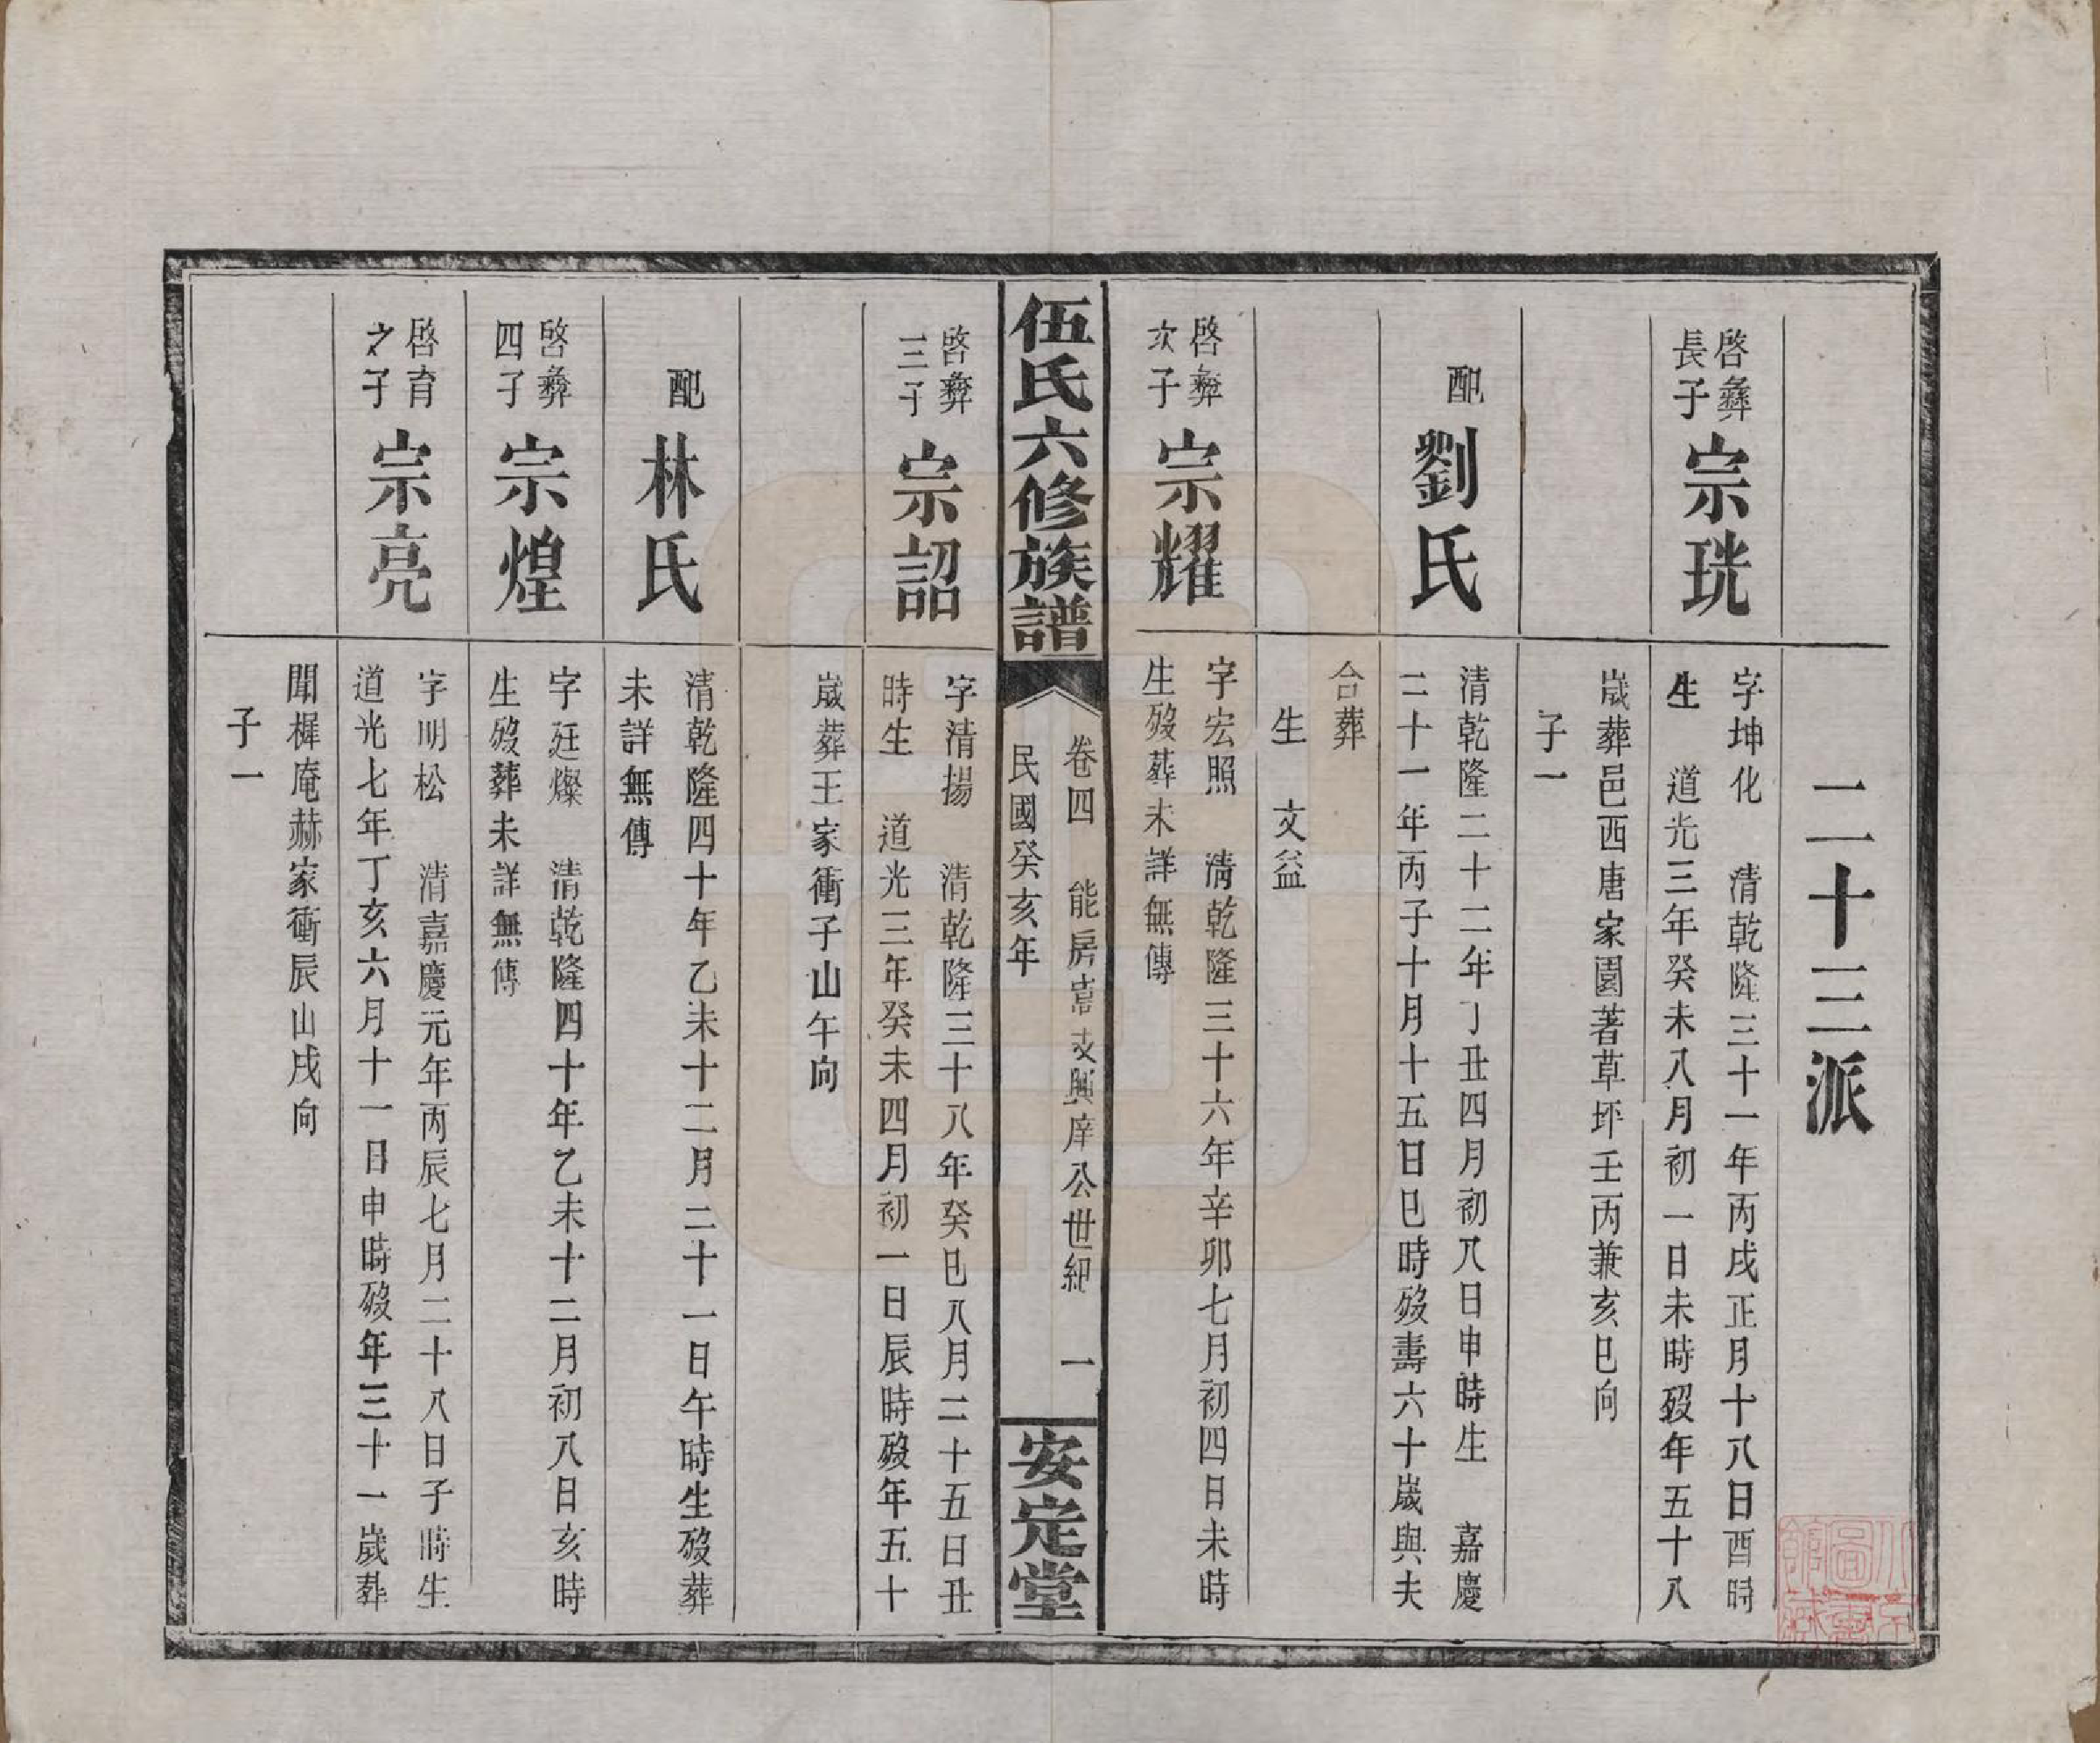 二十三派
啓彝
長子
宗珖
字坤化　清乾隆三十一年丙戌正月十八日酉時
生　道光三年癸未八月初一日未時歿年五十八
歲葬邑西唐家園著草坪壬丙兼亥巳向
子一
配
劉氏
清乾隆二十二年丁丑四月初八日申時生　嘉慶
二十一年丙子十月十五日巳時歿壽六十歲與夫
合葬
生　文益
啓彝
次子
宗耀
字宏照　清乾隆三十六年辛卯七月初四日未時
生歿葬未詳無傳
伍氏六修族譜
卷四　能房嵩支興庠公世紀　一
民國癸亥年
安定堂
啓彝
三子
宗詔
字清揚　清乾隆三十八年癸巳八月二十五日丑
時生　道光三年癸未四月初一日辰時歿年五十
歲葬王家衝子山午向
配
林氏
清乾隆四十年乙未十二月二十一日午時生歿葬
未詳無傳
啓彝
四子
宗煌
字廷燦　清乾隆四十年乙未十二月初八日亥時
生歿葬未詳無傳
啓育
之子
宗亮
字明松　清嘉慶元年丙辰七月二十八日子時生
道光七年丁亥六月十一日申時歿年三十一歲葬
聞樨庵赫家衝辰山戌向
子一